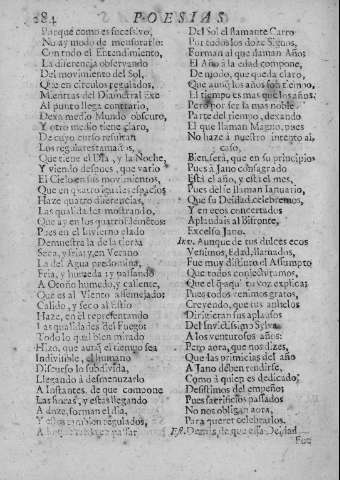 284 POESIAS
Porque como es sucessivo,
No ay modo de mensurarlo:
Con todo el Entendimiento,
La diferencia observando
Del movimiento del Sol,
Que en circulos regulados,
Mientras del Diametral Exe
Al punto llega contrario,
Dexa medio Mundo obscuro,
Y otro medio tiene claro,
De cuyo curso resultan
Los regulares tamaños,
Que tiene el Dia, y la Noche,
Y viendo despues, que vario
El Cielo en sus movimientos,
Que en quatro iguales espacios
Haze quatro diferencias,
Las qualidades mostrando,
Que ay en los quatro Elementos:
Pues en el Invierno elado
Demuestra la de la tierra
Seca, y fria; y, en Verano
La del Agua predomina,
Fria, y humeda; y passando
A Otoño humedo, y caliente,
Que es al Viento assimejado:
Calido, y seco al Estio
Haze, en el representando
Las qualidades del Fuego:
Todo lo qual bien mirado
Hizo, que aunq el tiempo sea
Indivisible, el humano
Discurso lo subdivida,
Llegando à desmenuzarlo
A Instantes, de que compone
Las horas, y estas llegando
A doze, forman el dia,
Y estos tambien regulados,
A
Del Sol el flamante Carro
Por todos los doze Signos,
Forman al que llaman Año
El Año à la edad compone,
De modo, que queda claro,
Que aunq los años son tiempo,
El tiempo es mas que los años.
Pero por ser la mas noble
Parte del tiempo, dexando
El que llaman Magno, pues
No haze à nuestro intento al
caso,
Bien serà, que en su principio
Pues à Jano consagrado
Està el año, y està el mes,
Pues del se llaman Ianuario,
Que su Deidad celebremos,
Y en ecos concertados
Aplaudais al bifronte,
Excelso Jano.
Inv. Aunque de tus dulces ecos
Venimos, Edad, llamados,
Fue muy distinto el Assumpto
Que todos conjecturamos,
Que el q̃ aqui tu voz explica:
Pues todos venimos gratos,
Creyendo, que tus aplausos
Dirigieran sus aplausos
Del Invictissimo Sylva
A los venturosos años:
Pero aora, que nos dizes,
Que las primicias del año
A Jano deben rendirse,
Como à quien es dedicado;
Desistimos del empeños
Pues sacrificios passados
No nos obligan aora,
Para querer celebrarlos.
Est. Demàs, de que essa Deidad
Fue